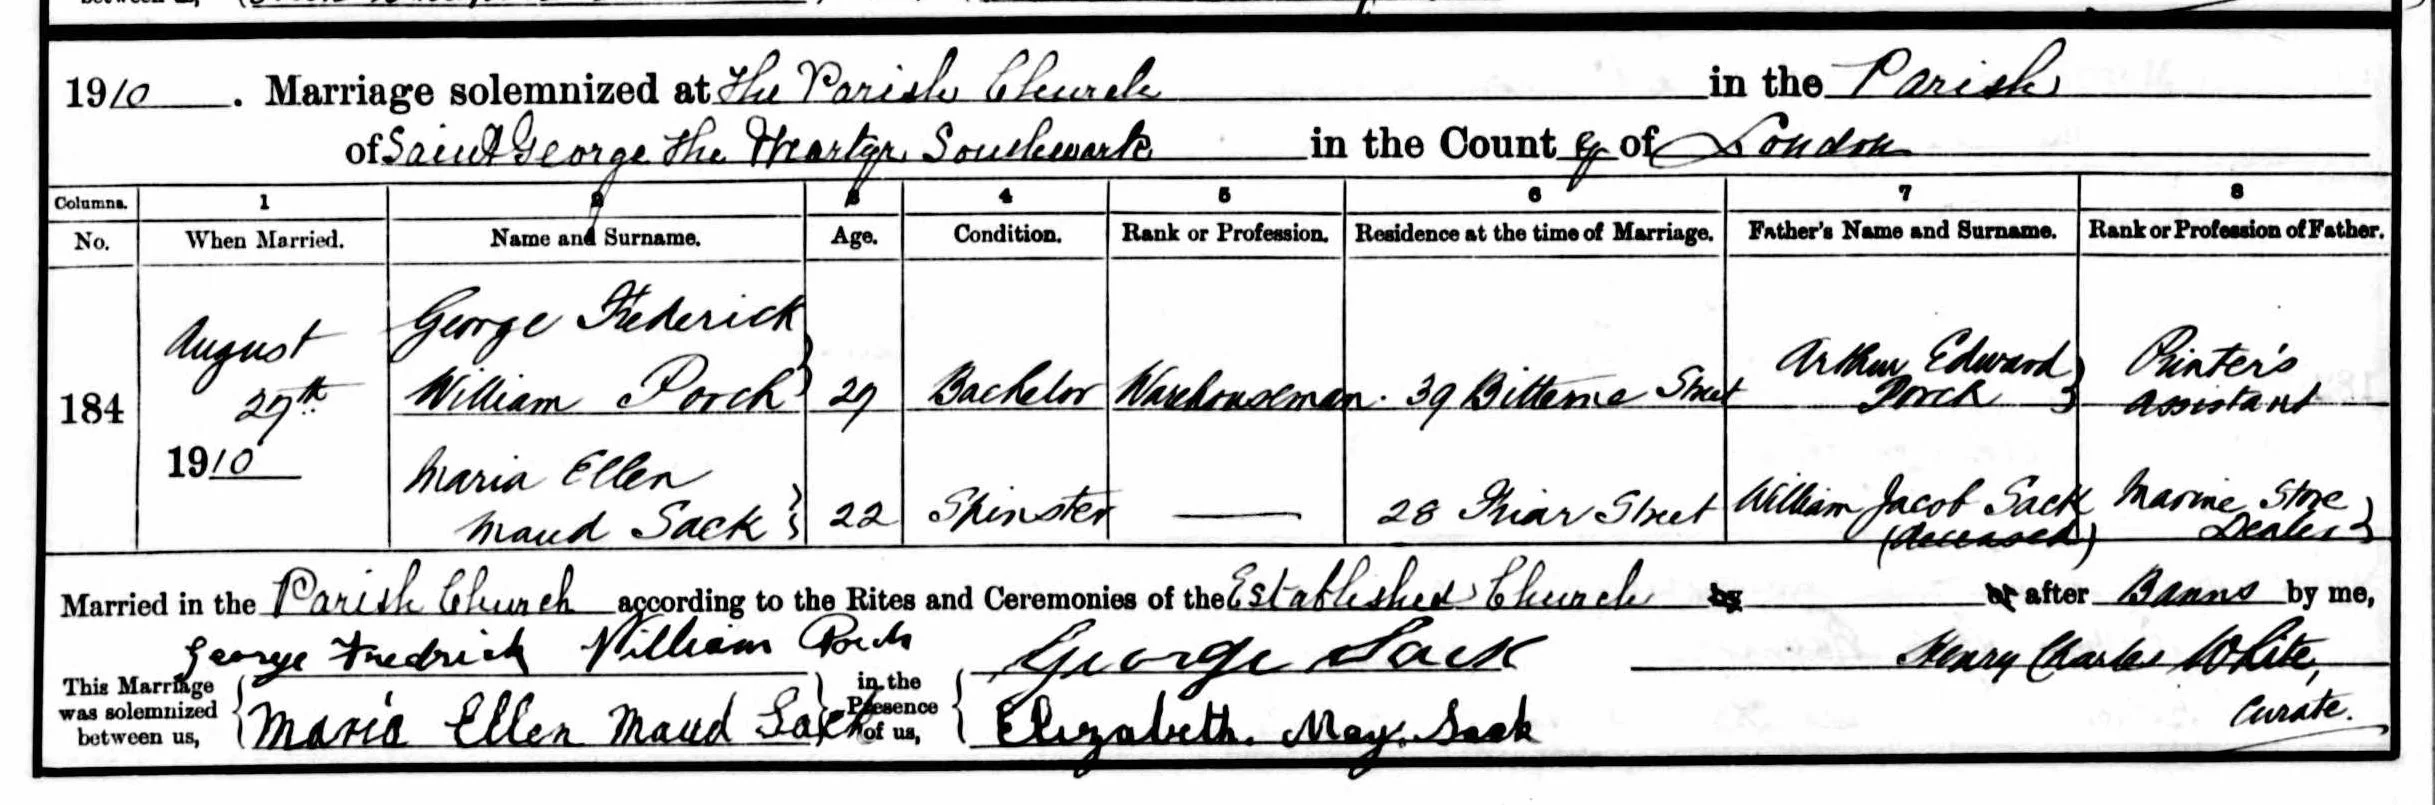 1910. Marriage solemnized at The Parish Church in the Parish
of Saint George the Martyr Southwark in the County of London
Columns. 1 2 3 4 5 6 7 8
No. When Married. Name and Surname. Age. Condition. Rank or Profession. Residence at the time of Marriage. Father's Name and Surname. Rank or Profession of Father.
184 August 27th 1910
George Frederick William Porch 27 Bachelor Warehouseman. 39 Bitterne Street Arthur Edward Porch Printer's Assistant
Maria Ellen Maud Sack 22 Spinster — 28 Friar Street William Jacob Sack (deceased) Marine Store Dealer
Married in the Parish Church according to the Rites and Ceremonies of the Established Church by or after Banns by me,
George Fredrick William Porch George Sack Henry Charles White,
This Marriage was solemnized between us, Maria Ellen Maud Sack in the Presence of us, Elizabeth. May. Sack Curate.